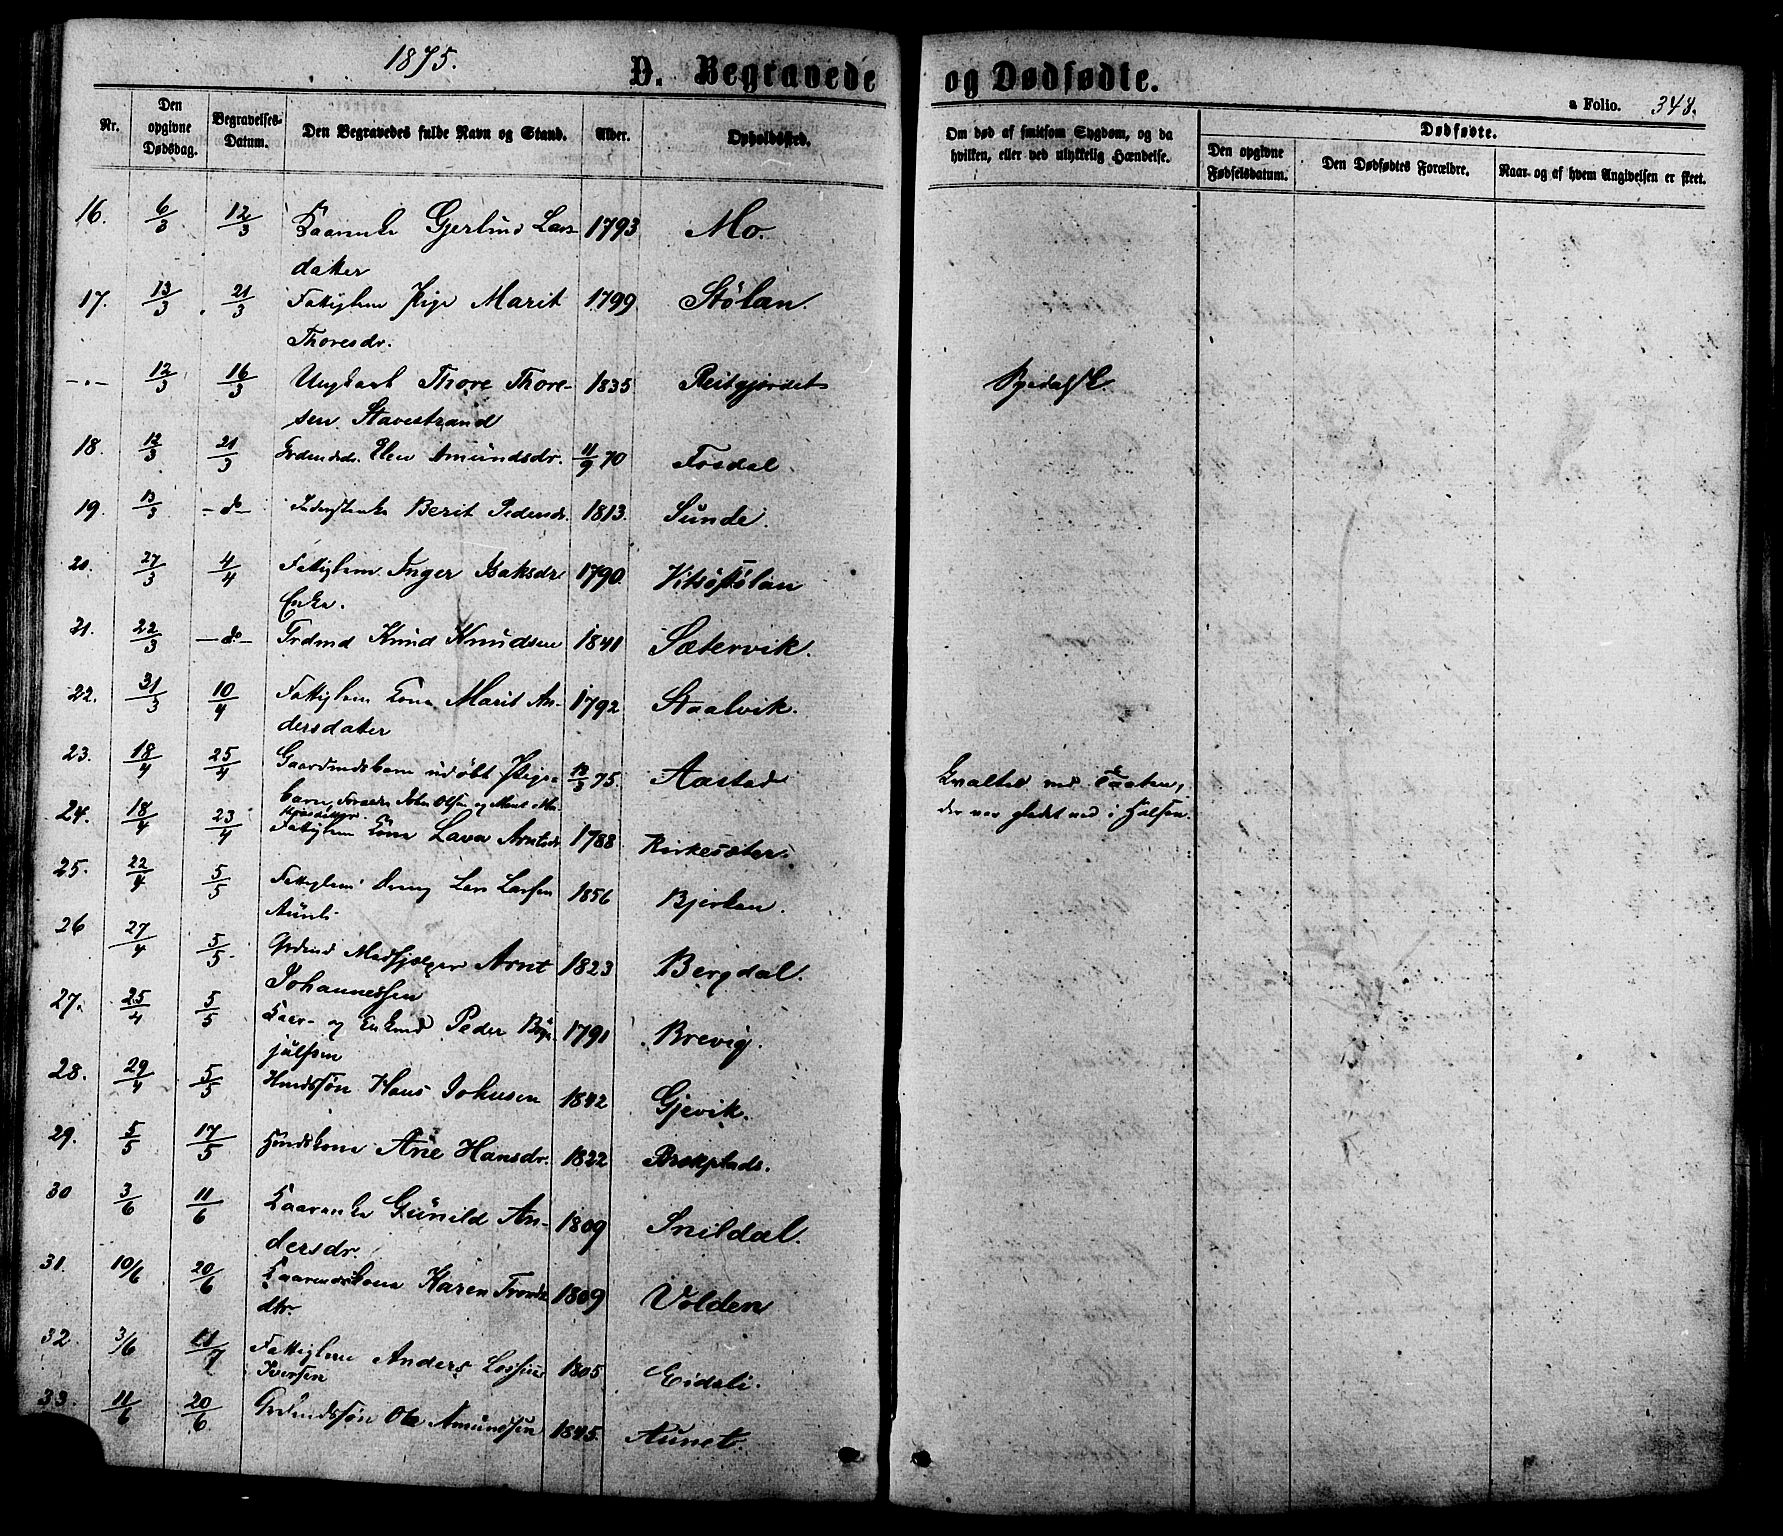 1875.
D. Begravede og Dødfødte.
a Folio. 348.
Nr.
Den opgivne Dødsdag.
Begravelses-Datum.
Den Begravedes fulde Navn og Stand.
Alder.
Opholdssted.
Om død af smitsom Sygdom, og da hvilken, eller ved ulykkelig Hændelse.
Dødfødte.
Den opgivne Fødselsdatum.
Den Dødfødtes Forældre.
Naar og af hvem Angivelsen er skeet.
16. 6/3 12/3 Kaarenke Gjertrud Lars- 1793 Mo.
datter
17. 13/3 21/3 Fattiglem Pige Marit 1799 Stølan.
Thoresdr.
-"- 12/3 16/3 Ungkarl Thore Thore- 1835 Reitgjerdet
sen Stavestrand
18. 12/3 21/3 Elen Amundsdr. 11/9 70 Fosdal.
19. 13/3 -do- Berit Pedersdr. 1813. Sunde.
20. 27/3 4/4 Fattiglem Inger Isaksdr 1790. Vitsøstølan
Enke.
21. 22/3 -do- Grdmd Knud Knudsen 1841 Sætervik.
22. 31/3 10/4 Fattiglem Kone Marit An- 1792 Staalvik.
dersdatter
23. 18/4 25/4 Gaardmdsbarn udøbt Pige- 13/3 75. Aastad
barn, Forældre John Olsen og Marit
Kvaltes ved
der var gledet ned i Halsen.
24. 18/4 23/4 Fattiglem Kone Lava Arntsdr 1788 Kirkesæter.
25. 22/4 5/5 Fattiglem Dreng Lars Larsen 1856 Bjerken.
Aunli
26 27/4 5/5. Grdmd Medhjælper Arnt 1823 Bergdal.
Johannessen
27. 25/4 5/5 Kaar- og Enkemd Peder 1791 Brevig.
28. 29/4 5/5 Hmdssøn Hans Johnsen 1842 Gjevik.
29. 5/5 17/5 Hmdskone Ane Hansdr. 1822
30 3/6 11/6 Kaarenke Gunild An- 1809 Snildal.
dersdr.
31. 10/6 20/6 Kaarmdskone Karen Tronds 1809 Volden
dtr.
32 3/6 11/7 Fattiglem Anders 1805 Eidsli.
Iversen
33. 11/6 20/6. Grdmdssøn Ole Amundsen 1845. Aunet